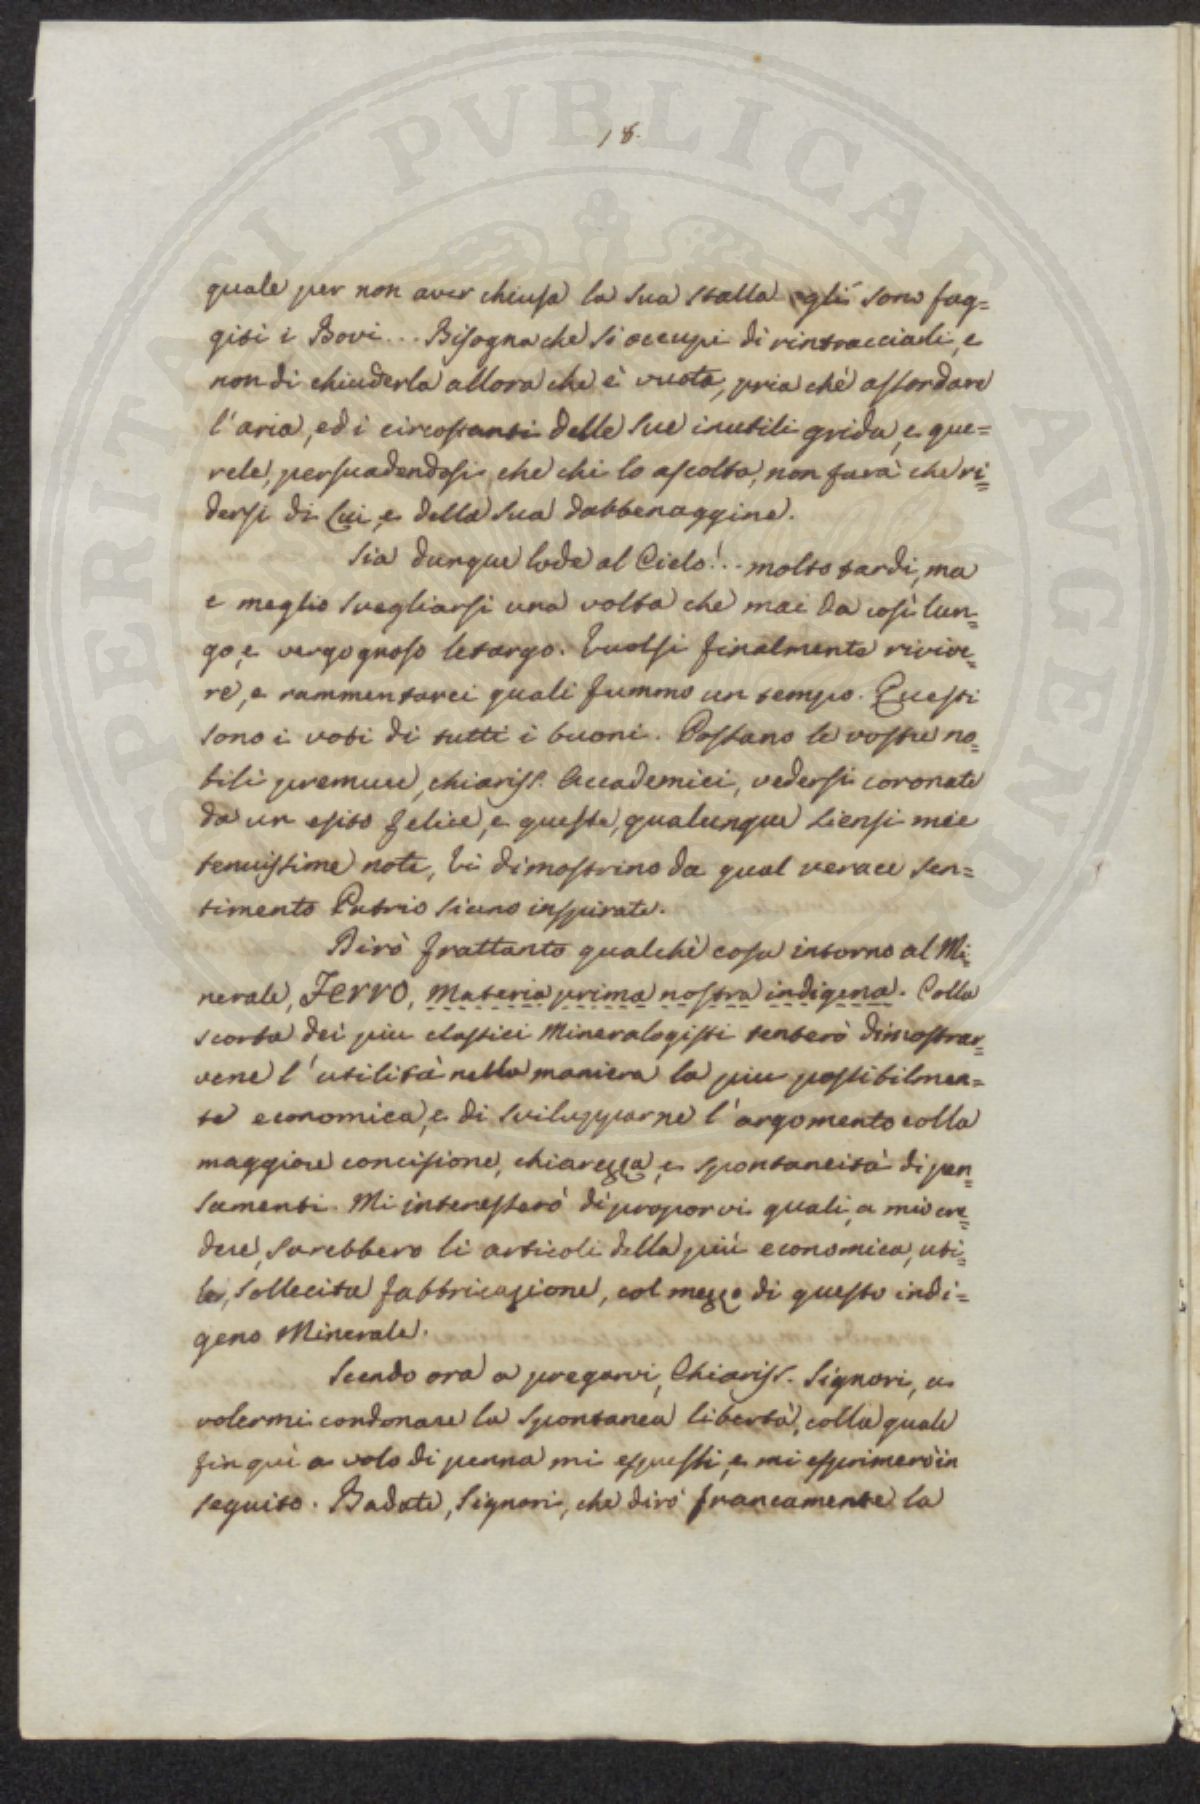 18.
quale per non aver chiusa la sua stalla egli sono fug=
giti i Bovi... Bisogna che si occupi di rintracciarli, e
non di chiuderla allora che è vuota, pria chè assordare
l'aria, ed i circostanti delle sue inutili grida, e que=
rele, persuadendosi che chi lo ascolta, non farà che ri=
dersi di Lui, e della sua dabbenaggine.
Sia dunque lode al Cielo!.. molto tardi, ma
e meglio svegliarsi una volta che mai da così lun=
go, e vergognoso letargo. Vuolsi finalmente rivive=
re, e rammentarci quali fummo un tempo. Questi
sono i voti di tutti i buoni. Possano le vostre no=
bili premure, chiariss. Accademici, vedersi coronate
da un esito felice, e queste, qualunque siensi mie
tenuissime note, Vi dimostrino da qual verace sen=
timento Patrio siano inspirate.
Dirò frattanto qualchè cosa intorno al Mi=
nerale, Ferro, materia prima nostra indigena. Colla
scorta dei piu classici Mineralogisti tenterò dimostrar=
vene l'utilità nella maniera la piu possibilmen=
te economica, e di svilupparne l'argomento colla
maggiore concisione, chiarezza, e spontaneità di pen=
samenti. Mi interesserò di proporvi quali, a mio cre=
dere, sarebbero li articoli della più economica, uti=
le, sollecita fabbricazione, col mezzo di questo indi=
geno Minerale.
Scendo ora a pregarvi, Chiariss. Signori, a
volermi condonare la spontanea libertà, colla quale
fin quì a volo di penna mi espressi, e mi esprimerò in
seguito. Badate, Signori, che dirò francamente la
SPERITATI PVBLICAE AVGENDAE